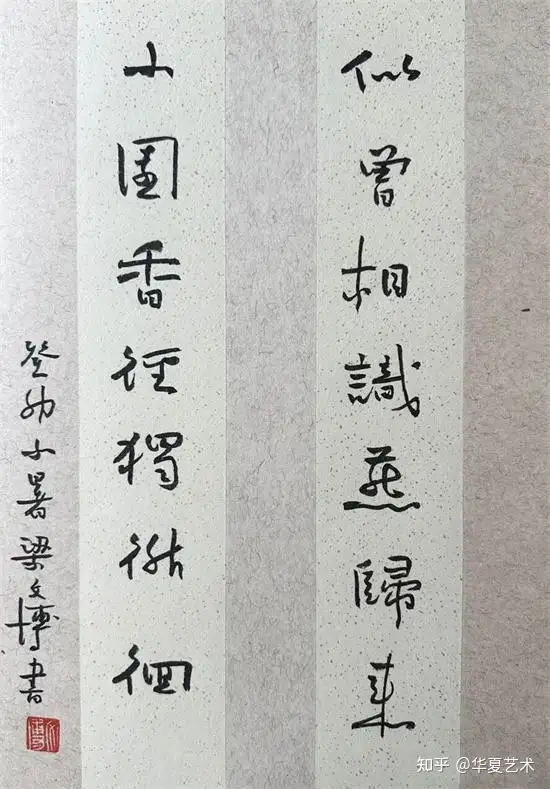 似曾相識燕歸來
小園香徑獨徘徊
癸卯小暑梁文博書
知乎 @华夏艺术